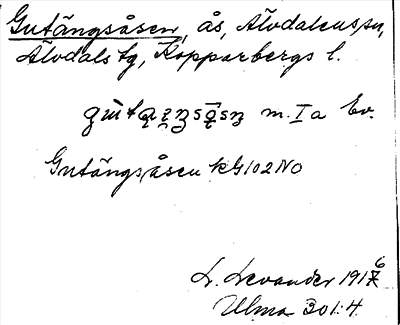 Gutängsåsen, ås, Älvdalens sn,
Älvdals tg, Kopparbergs l.
m. I a Ev.
Gutängsåsen kG102NO
L. Levander 1916
Ulma 301:4.